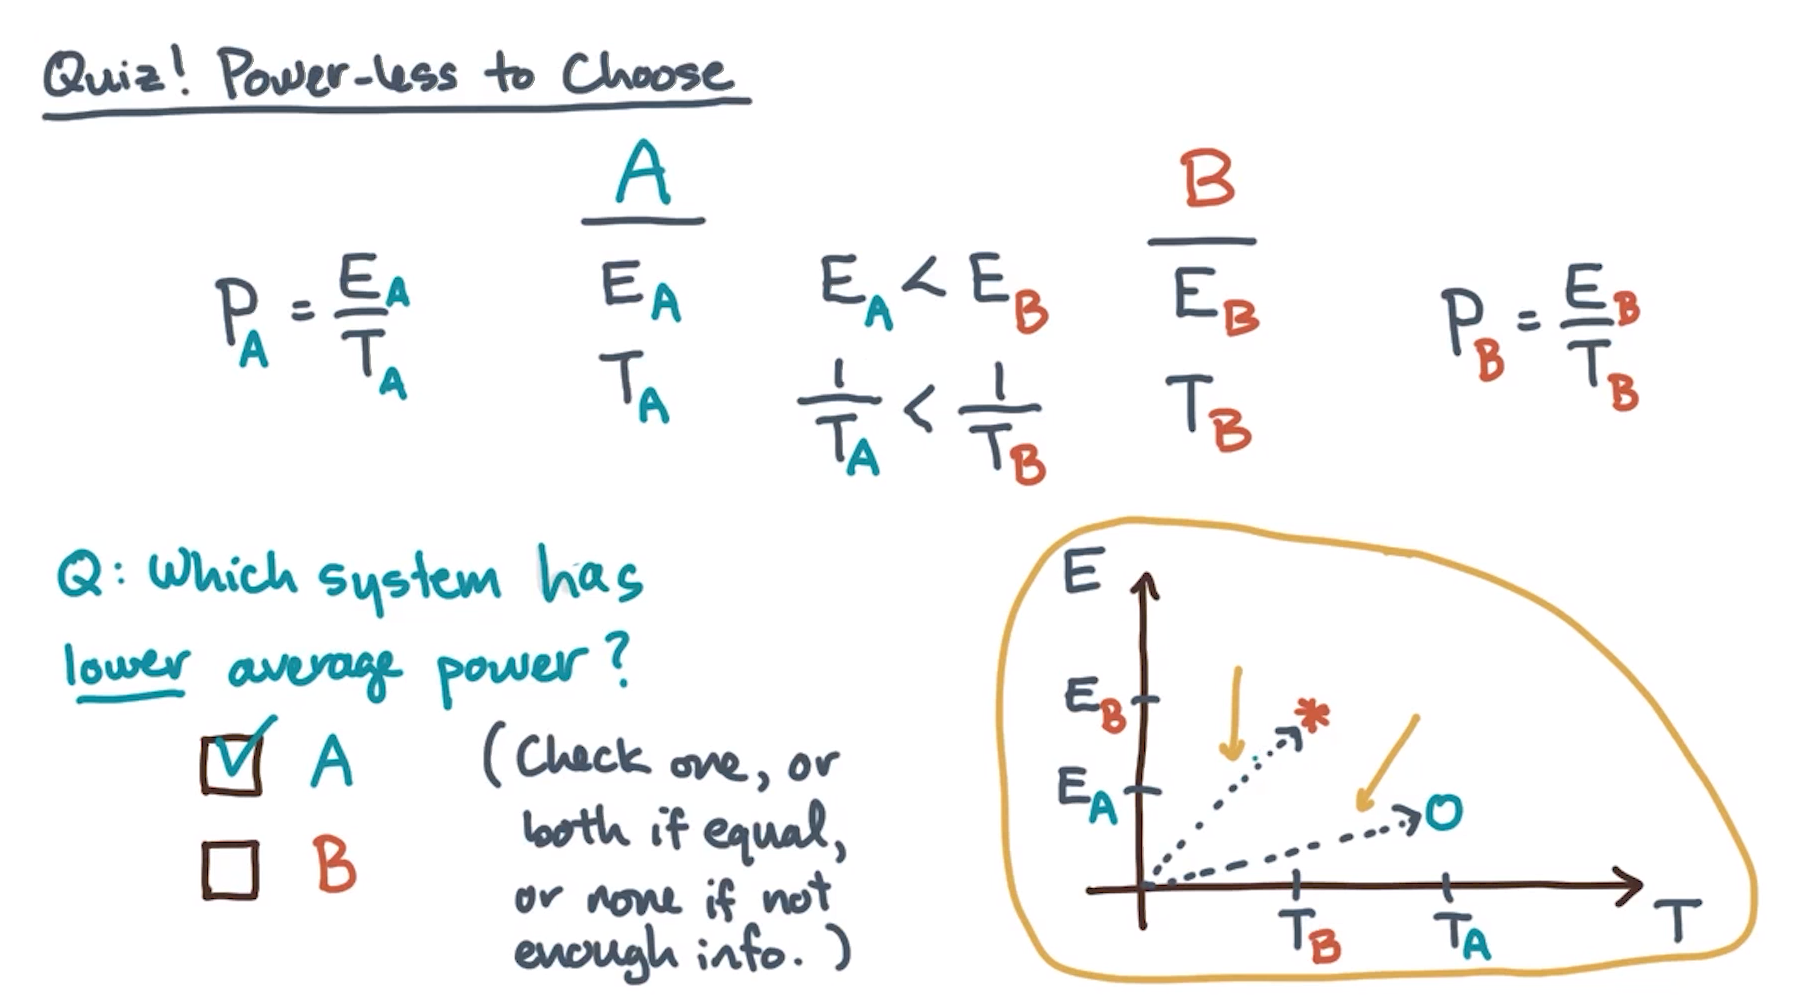 Quiz! Power-less to Choose
A
B
P_A = E_A / T_A
E_A
T_A
E_A < E_B
1/T_A < 1/T_B
E_B
T_B
P_B = E_B / T_B
Q: Which system has
lower average power?
A
B
(Check one, or
both if equal,
or none if not
enough info.)
E
E_B
*
E_A
O
T_B
T_A
T